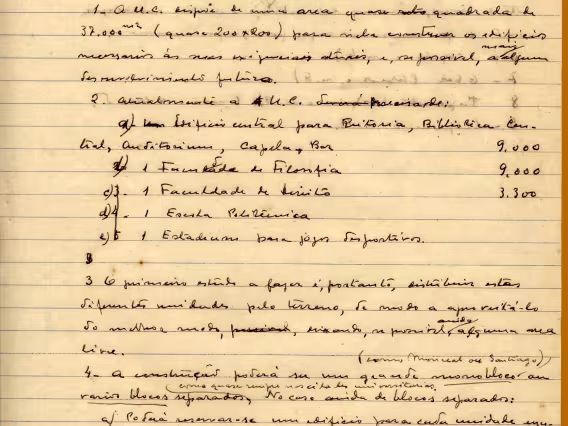 1. A U.C. dispõe de uma area quase quadrada de
37.000 m2 (quase 200x200) para nela construir os edifícios
necessarios ás suas exigencias atuais, e, se possivel, mais algum
desenvolvimento futuro.
2. Atualmente a U.C. precisa de:
a) Edificio central para Reitoria, Biblioteca Cen-
tral, Auditorium, Capela, Bar 9.000
1 Faculdade de Filosofia 9.000
c) 3. 1 Faculdade de Direito 3.300
d) 4. 1 Escola Politécnica
e) 5 1 Estadium para jogos desportivos.
3 O primeiro estudo a fazer é, portanto, distribuir estas
diferentes unidades pelo terreno, de modo a aproveitá-lo
do melhor modo, visando, se possivel, ainda alguma area
livre.
(como Montreal ou Santiago)
4. A construção poderá ser um grande monobloco ou
(como quase sempre nas cidades universitárias)
varios blocos separados. No caso ainda de blocos separados:
a) Poderá reservar-se um edificio para cada unidade